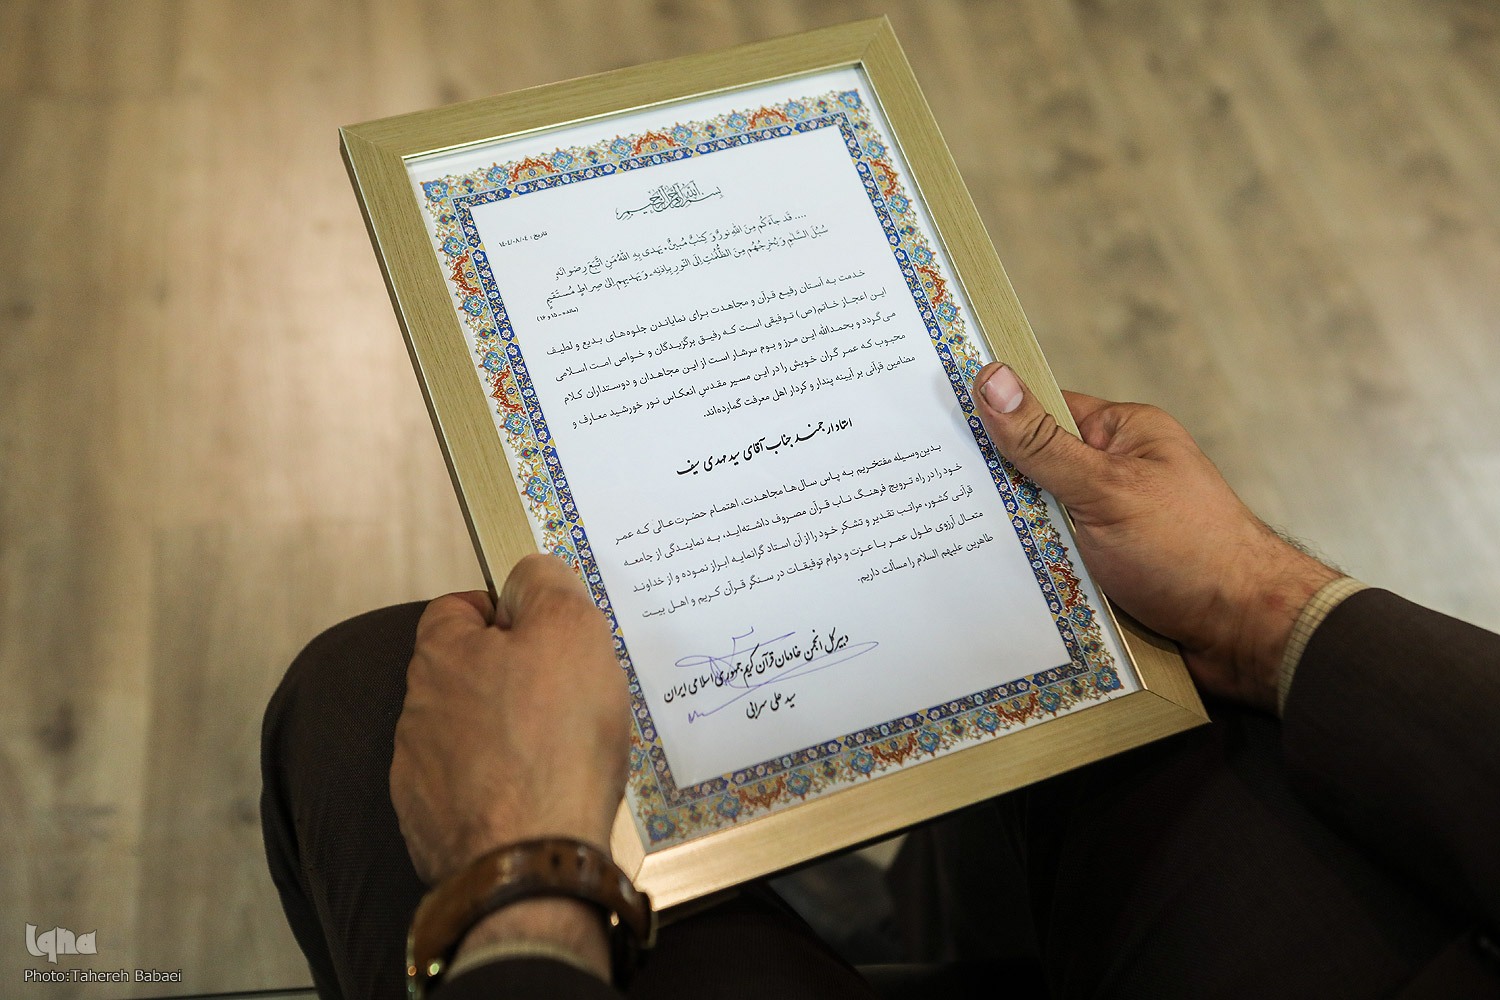 بسم الله الرحمن الرحیم
تاریخ: ۱۴۰۴/۰۸/۰۴
.... قَد جاءَكُم مِنَ اللّهِ نورٌ وَ كِتابٌ مُبينٌ. يَهدى بِهِ اللّهُ مَنِ اتَّبَعَ رِضوانَهِ
سُبُلَ السَّلامِ وَ يُخرِجُهُم مِنَ الظُّلُماتِ اِلَى النّورِ بِاِذنِه. وَ يَهديهِم اِلى صِراطٍ مُستَقيمٍ
(مائده - ۱۵ و ۱۶)
خدمت به آستان رفیع قرآن و مجاهدت برای نمایاندن جلوه‌های بدیع و لطیف
این اعجاز خاتم(ص) توفیقی است که رفیق برگزیدگان و خواص امت اسلامی
می‌گردد و بحمدالله این مرز و بوم سرشار است از این مجاهدان و دوستداران کلام
محبوب که عمر گران خویش را در این مسیر مقدس انعکاس نور خورشید معارف و
مضامین قرآنی بر آیینه پندار و کردار اهل معرفت گمارده‌اند.
استاد ارجمند جناب آقای سید مهدی سیف
بدین‌وسیله مفتخریم به پاس سال‌ها مجاهدت، اهتمام حضرت‌عالی که عمر
خود را در راه ترویج فرهنگ ناب قرآن مصروف داشته‌اید، به نمایندگی از جامعه
قرآنی کشور، مراتب تقدیر و تشکر خود را از آن استاد گرانمایه ابراز نموده و از خداوند
متعال آرزوی طول عمر با عزت و دوام توفیقات در سنگر قرآن کریم و اهل بیت
طاهرین علیهم السلام را مسألت داریم.
دبیرکل انجمن خادمان قرآن کریم جمهوری اسلامی ایران
سید علی سرابی
Iqna
Photo:Tahereh Babaei